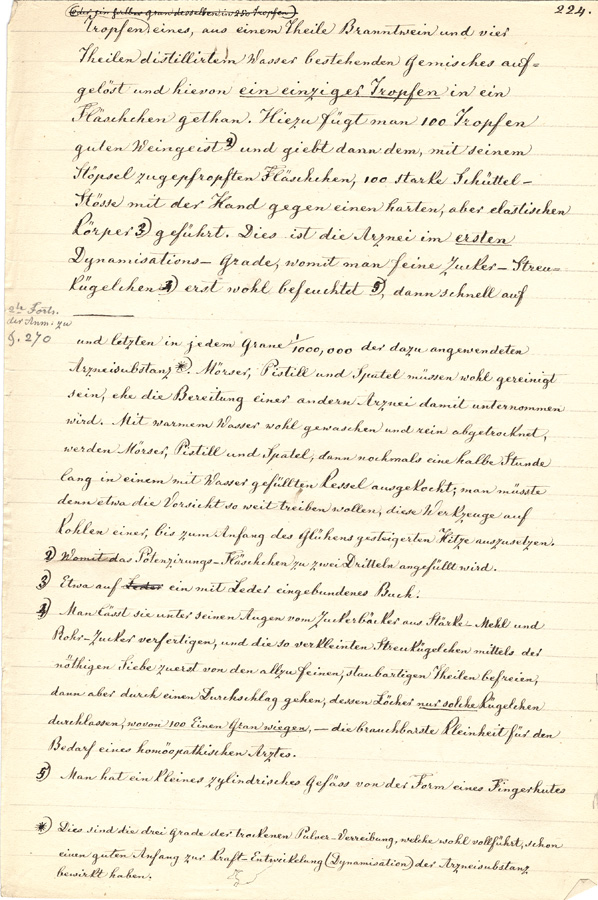 224.
(oder ein halber Gran desselben in 250 Tropfen)
Tropfen) eines, aus einem Theile Branntwein und vier
Theilen distillirtem Wasser bestehenden Gemisches auf=
gelöst und hievon ein einziger Tropfen in ein
Fläschchen gethan. Hiezu fügt man 100 Tropfen
guten Weingeist 2) und giebt dann dem, mit seinem
Stöpsel zugepfropften Fläschchen, 100 starke Schüttel-
Stösse mit der Hand gegen einen harten, aber elastischen
Körper 3) geführt. Dies ist die Arznei im ersten
Dynamisations-Grade, womit man feine Zucker-Streu=
Kügelchen 4) erst wohl befeuchtet 5), dann schnell auf
2te Forts.
der Anm. zu
§. 270
und letzten in jedem Grane 1/1000,000 der dazu angewendeten
Arzneisubstanz *). Mörser, Pistill und Spatel müssen wohl gereinigt
sein, ehe die Bereitung einer andern Arznei damit unternommen
wird. Mit warmem Wasser wohl gewaschen und rein abgetrocknet,
werden Mörser, Pistill und Spatel, dann nochmals eine halbe Stunde
lang in einem mit Wasser gefüllten Kessel ausgekocht; man müsste
denn etwa die Vorsicht so weit treiben wollen, diese Werkzeuge auf
Kohlen einer, bis zum Anfang des Glühens gesteigerten Hitze auszusetzen.
2) Womit das Potenzirungs-Fläschchen zu zwei Dritteln angefüllt wird.
3) Etwa auf Leder ein mit Leder eingebundenes Buch.
4) Man lässt sie unter seinen Augen vom Zuckerbäcker aus Stärke-Mehl und
Rohr-Zucker verfertigen, und die so verkleinten Streukügelchen mittels der
nöthigen Siebe zuerst von den allzu feinen, staubartigen Theilen befreien,
dann aber durch einen Durchschlag gehen, dessen Löcher nur solche Kügelchen
durchlassen, wovon 100 Einen Gran wiegen, — die brauchbarste Kleinheit für den
Bedarf eines homöopathischen Arztes.
5) Man hat ein kleines zylindrisches Gefäss von der Form eines Fingerhutes
*) Dies sind die drei Grade der trockenen Pulver-Verreibung, welche wohl vollführt, schon
einen guten Anfang zur Kraft-Entwickelung (Dynamisation) der Arzneisubstanz
bewirkt haben.